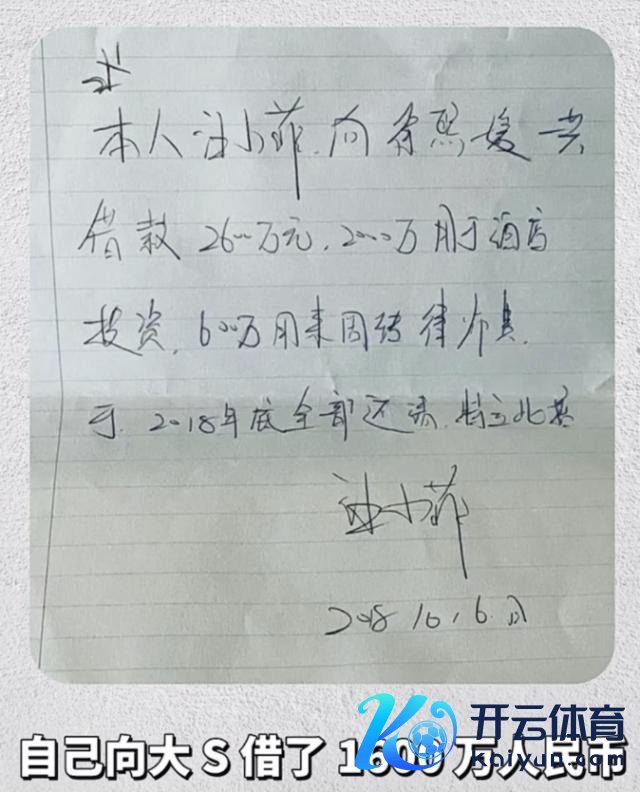 本人汪小菲.向徐熙媛共
借款2600万元.2000万用于酒店
投资,600万用来周转律师费.
于.2018年底全部还清.特立此
汪小菲
2018.10.6.日
自己向大S借了1600万人民币
开云体育
Kaiyun.com